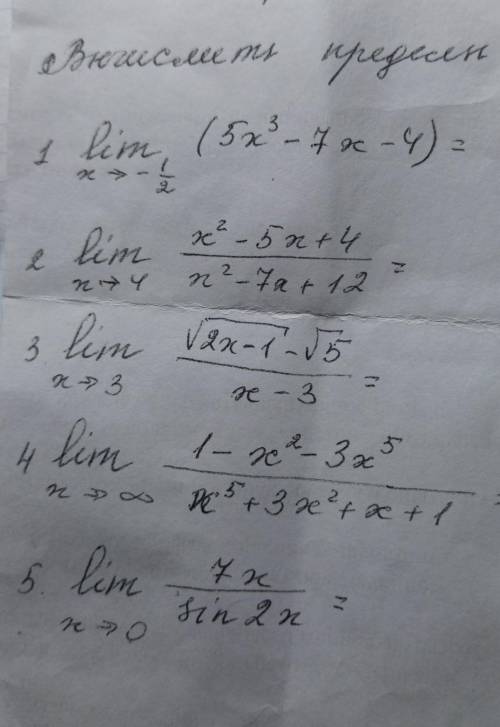 Вычислить пределы
1 lim x→-1/2 (5x³ - 7x - 4) =
2 lim x→4 (x² - 5x + 4)/(x² - 7x + 12) =
3 lim x→3 (√(2x-1) - √5)/(x - 3) =
4 lim x→∞ (1 - x² - 3x⁵)/(x⁵ + 3x² + x + 1) =
5. lim x→0 7x/(sin 2x) =